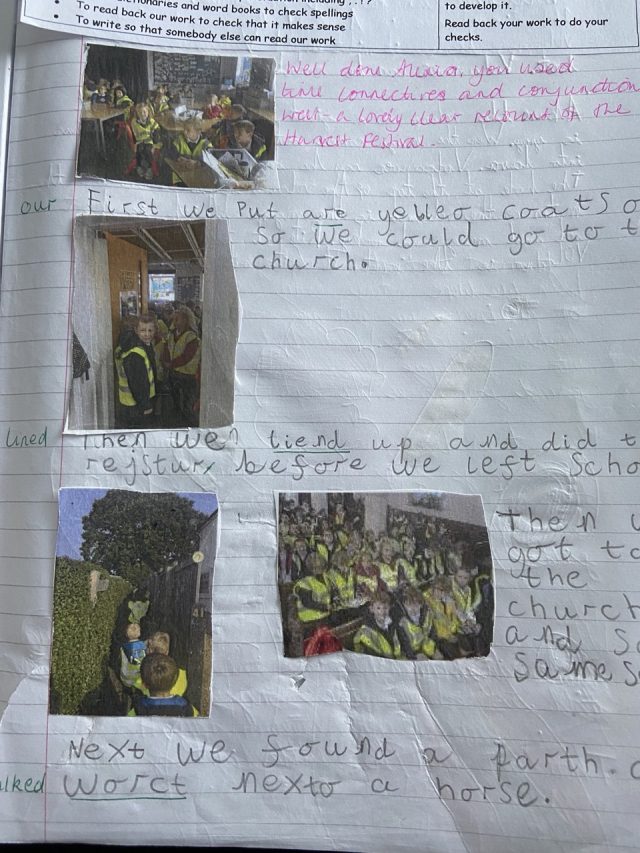 dictionaries and word books to check spellings
To read back our work to check that it makes sense
To write so that somebody else can read our work
to develop it.
Read back your work to do your
checks.
Well done you used
time connectives and conjunction
well - a lovely clear recount of the
Harvest Festival.
our First we put are yelleo coats o
so we could go to t
church.
lined Then wen liend up and did t
rejstur before we left Scho
Then
got to
the
church
and S
same s
Next we found a parth.
alked worct nexto a horse.